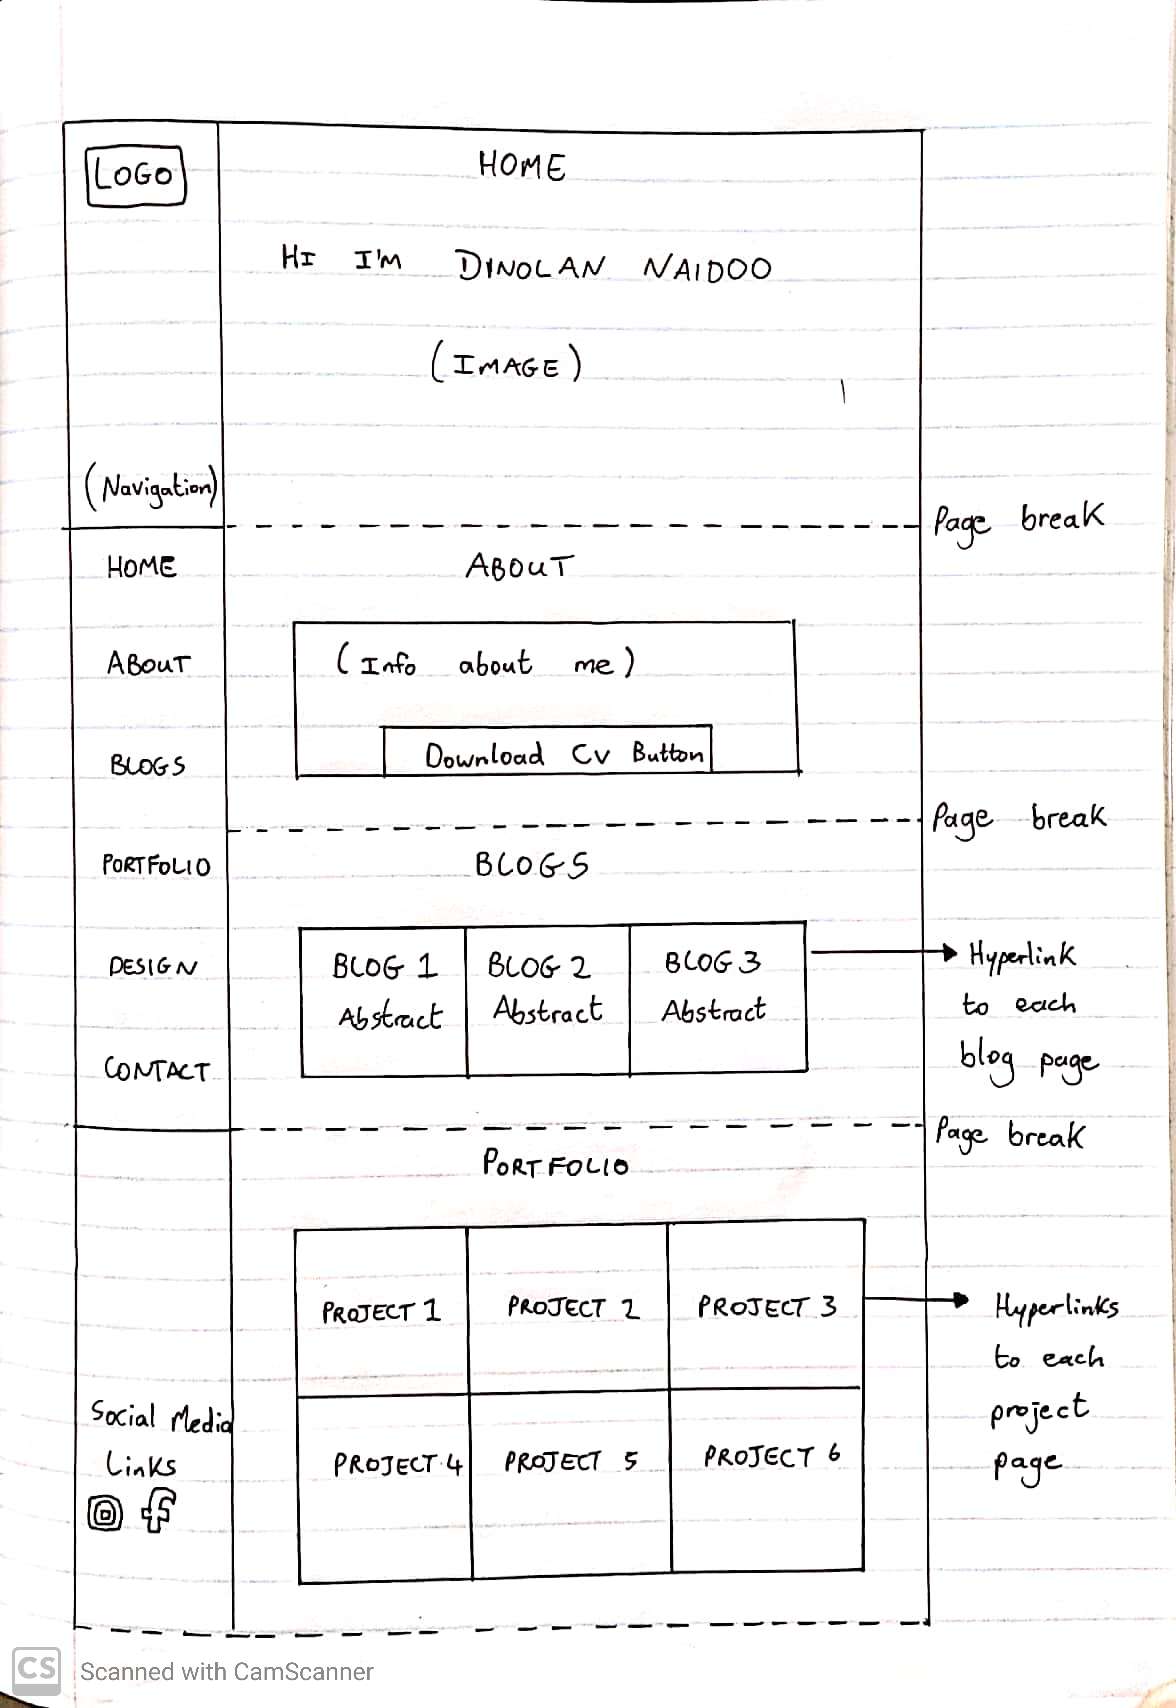 LOGO
HOME
HI I'M DINOLAN NAIDOO
(IMAGE)
(Navigation)
Page break
HOME
ABOUT
ABOUT
(Info about me)
BLOGS
Download CV Button
Page break
PORTFOLIO
BLOGS
DESIGN
BLOG 1
Abstract
BLOG 2
Abstract
BLOG 3
Abstract
Hyperlink
to each
blog page
CONTACT
Page break
PORTFOLIO
PROJECT 1
PROJECT 2
PROJECT 3
Hyperlinks
to each
project
page
Social Media
Links
PROJECT 4
PROJECT 5
PROJECT 6
CS Scanned with CamScanner